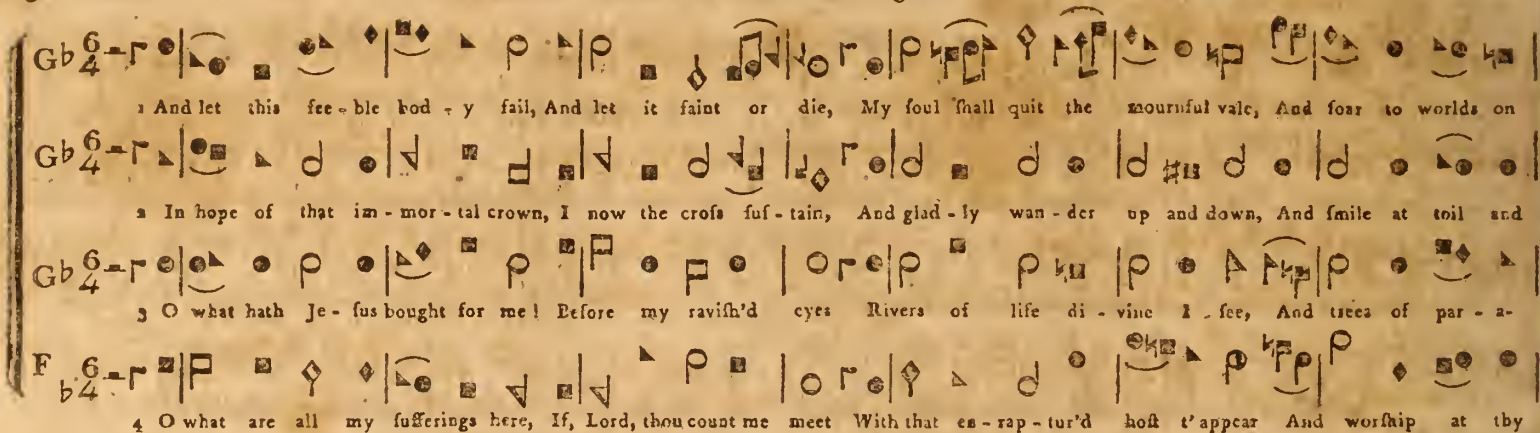 G♭ 6/4
1 And let this fee - ble bod - y fail, And let it faint or die, My ſoul ſhall quit the mournful vale, And ſoar to worlds on
G♭ 6/4
2 In hope of that im - mor - tal crown, I now the croſs ſuſ - tain, And glad - ly wan - der up and down, And ſmile at toil and
G♭ 6/4
3 O what hath Je - ſus bought for me! Before my raviſh'd eyes Rivers of life di - vine I - ſee, And trees of par - a-
F ♭ 6/4
4 O what are all my ſufferings here, If, Lord, thou count me meet With that en - rap - tur'd hoſt t'appear And worſhip at thy